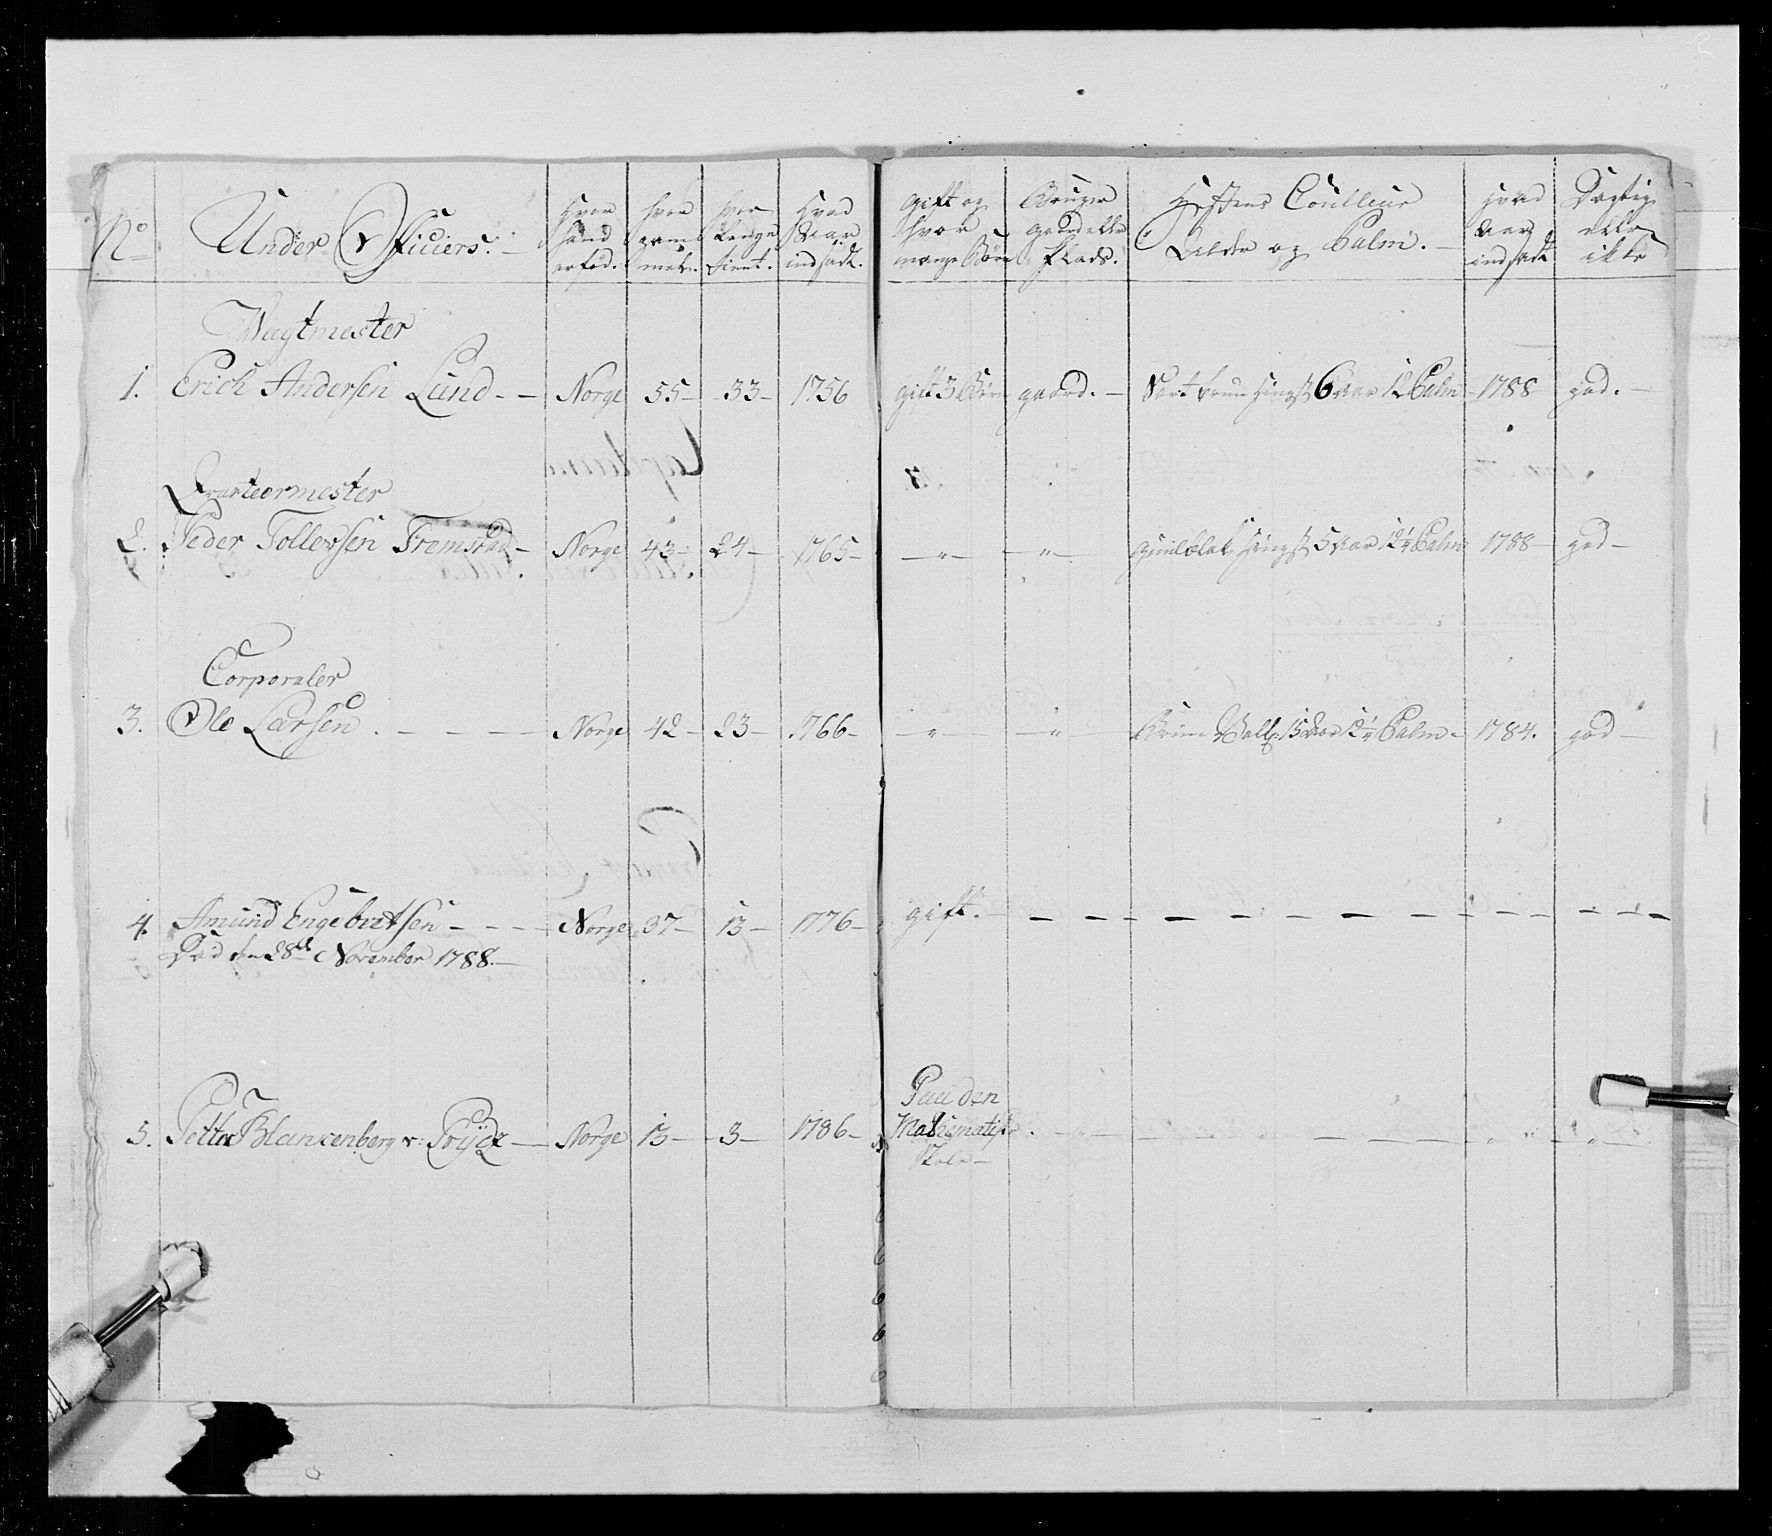 No Under Officiers. Hvor hand er fød. hvor gammel. hvor Lenge tient. Hvad Aar indsadt. gift og hvor mange Børn Bruger gaard eller Plads. Hestens Coulleur Alder og Palm. Hvad Aar indsadt Dygtig eller ikke
Wagtmester
1. Erich Andersen Lund - - Norge 55 - 33 - 1756 gift 3 Børn gaard. - Sort brun Hingst 6 Aar 12 Palm - 1788 god. -
Qvarteermester
2. Peder Tollevsen Fremstad - Norge 43 - 24 - 1765 - - " - - " - Hingst 5 Aar 12 1/4 Palm 1788 - god -
Corporaler
3. Ole Larsen - - - - Norge 42 - 23 - 1766 - - " - - " - Brun Vallk 15 Aar 12 1/4 Palm - 1784. god -
4. Amund Engebretsen - - - - Norge 37 - 13 - 1776 - gift. -
Død den 28de November 1788. -
5. Petter Blankenberg v: Prydz - Norge 13 - 3 - 1786 - Paa den Mathematiske Skole -